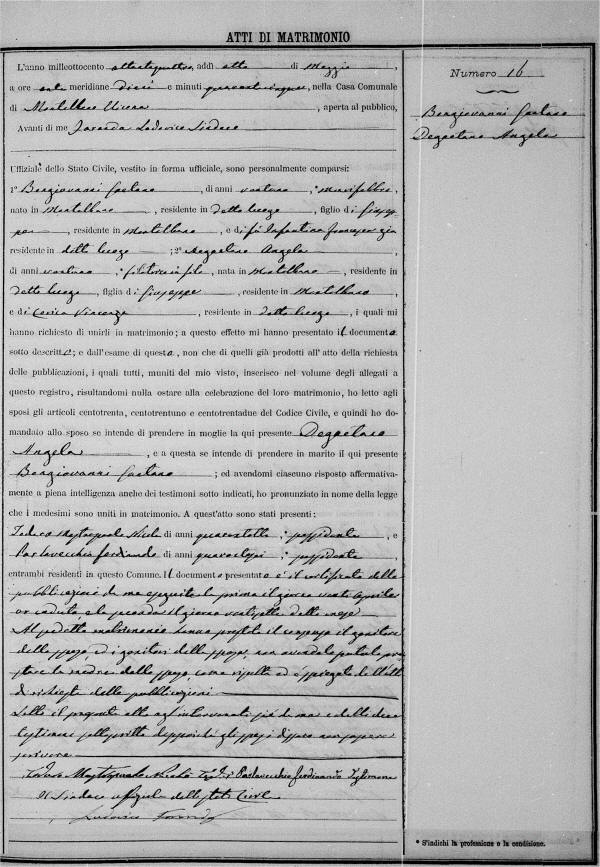 ATTI DI MATRIMONIO
L'anno milleottocento ottantaquattro, addì otto di Maggio,
a ore ante meridiane dieci e minuti quarantacinque, nella Casa Comunale
di Montalbano, aperta al pubblico,
Avanti di me Lodovico Sindaco
Uffiziale dello Stato Civile, vestito in forma ufficiale, sono personalmente comparsi:
1° Bongiovanni Gaetano, di anni ventuno,
nato in Montalbano, residente in detto luogo, figlio di Giusep
pe, residente in Montalbano, e di fu Infantino
residente in detto luogo; 2° Degaetano Angela,
di anni ventuno, filatrice, nata in Montalbano, residente in
detto luogo, figlia di Giuseppe, residente in Montalbano,
e di Vincenza, residente in detto luogo, i quali mi
hanno richiesto di unirli in matrimonio; a questo effetto mi hanno presentato il documento
sotto descritto; e dall'esame di questo, non che di quelli già prodotti all'atto della richiesta
delle pubblicazioni, i quali tutti, muniti del mio visto, inserisco nel volume degli allegati a
questo registro, risultandomi nulla ostare alla celebrazione del loro matrimonio, ho letto agli
sposi gli articoli centotrenta, centotrentuno e centotrentadue del Codice Civile, e quindi ho do-
mandato allo sposo se intende di prendere in moglie la qui presente Degaetano
Angela, e a questa se intende di prendere in marito il qui presente
Bongiovanni Gaetano; ed avendomi ciascuno risposto affermativa-
mente a piena intelligenza anche dei testimoni sotto indicati, ho pronunziato in nome della legge
che i medesimi sono uniti in matrimonio. A quest'atto sono stati presenti:
di anni quarantotto, possidente, e
Portavecchia Ferdinando di anni possidente,
entrambi residenti in questo Comune. Il documento presentato è il certificato delle
pubblicazioni da me eseguite la prima il giorno venti Aprile
or caduto e la seconda il giorno ventisette dello mese
Al predetto matrimonio hanno prestato il consenso il genitore
dello sposo, ed i genitori della sposa, non avendolo potuto pre
stare la madre dello sposo, come risulta dall'atto
di richiesta delle pubblicazioni
Letto il presente atto agl'intervenuti, da me e dalli due
testimoni sottoscritto dappoiché gli sposi dissero non sapere
scrivere
Portavecchia Ferdinando Testimone
Il Sindaco Uffiziale dello Stato Civile
Numero 16
Bongiovanni Gaetano
Degaetano Angela
* S'indichi la professione o la condizione.